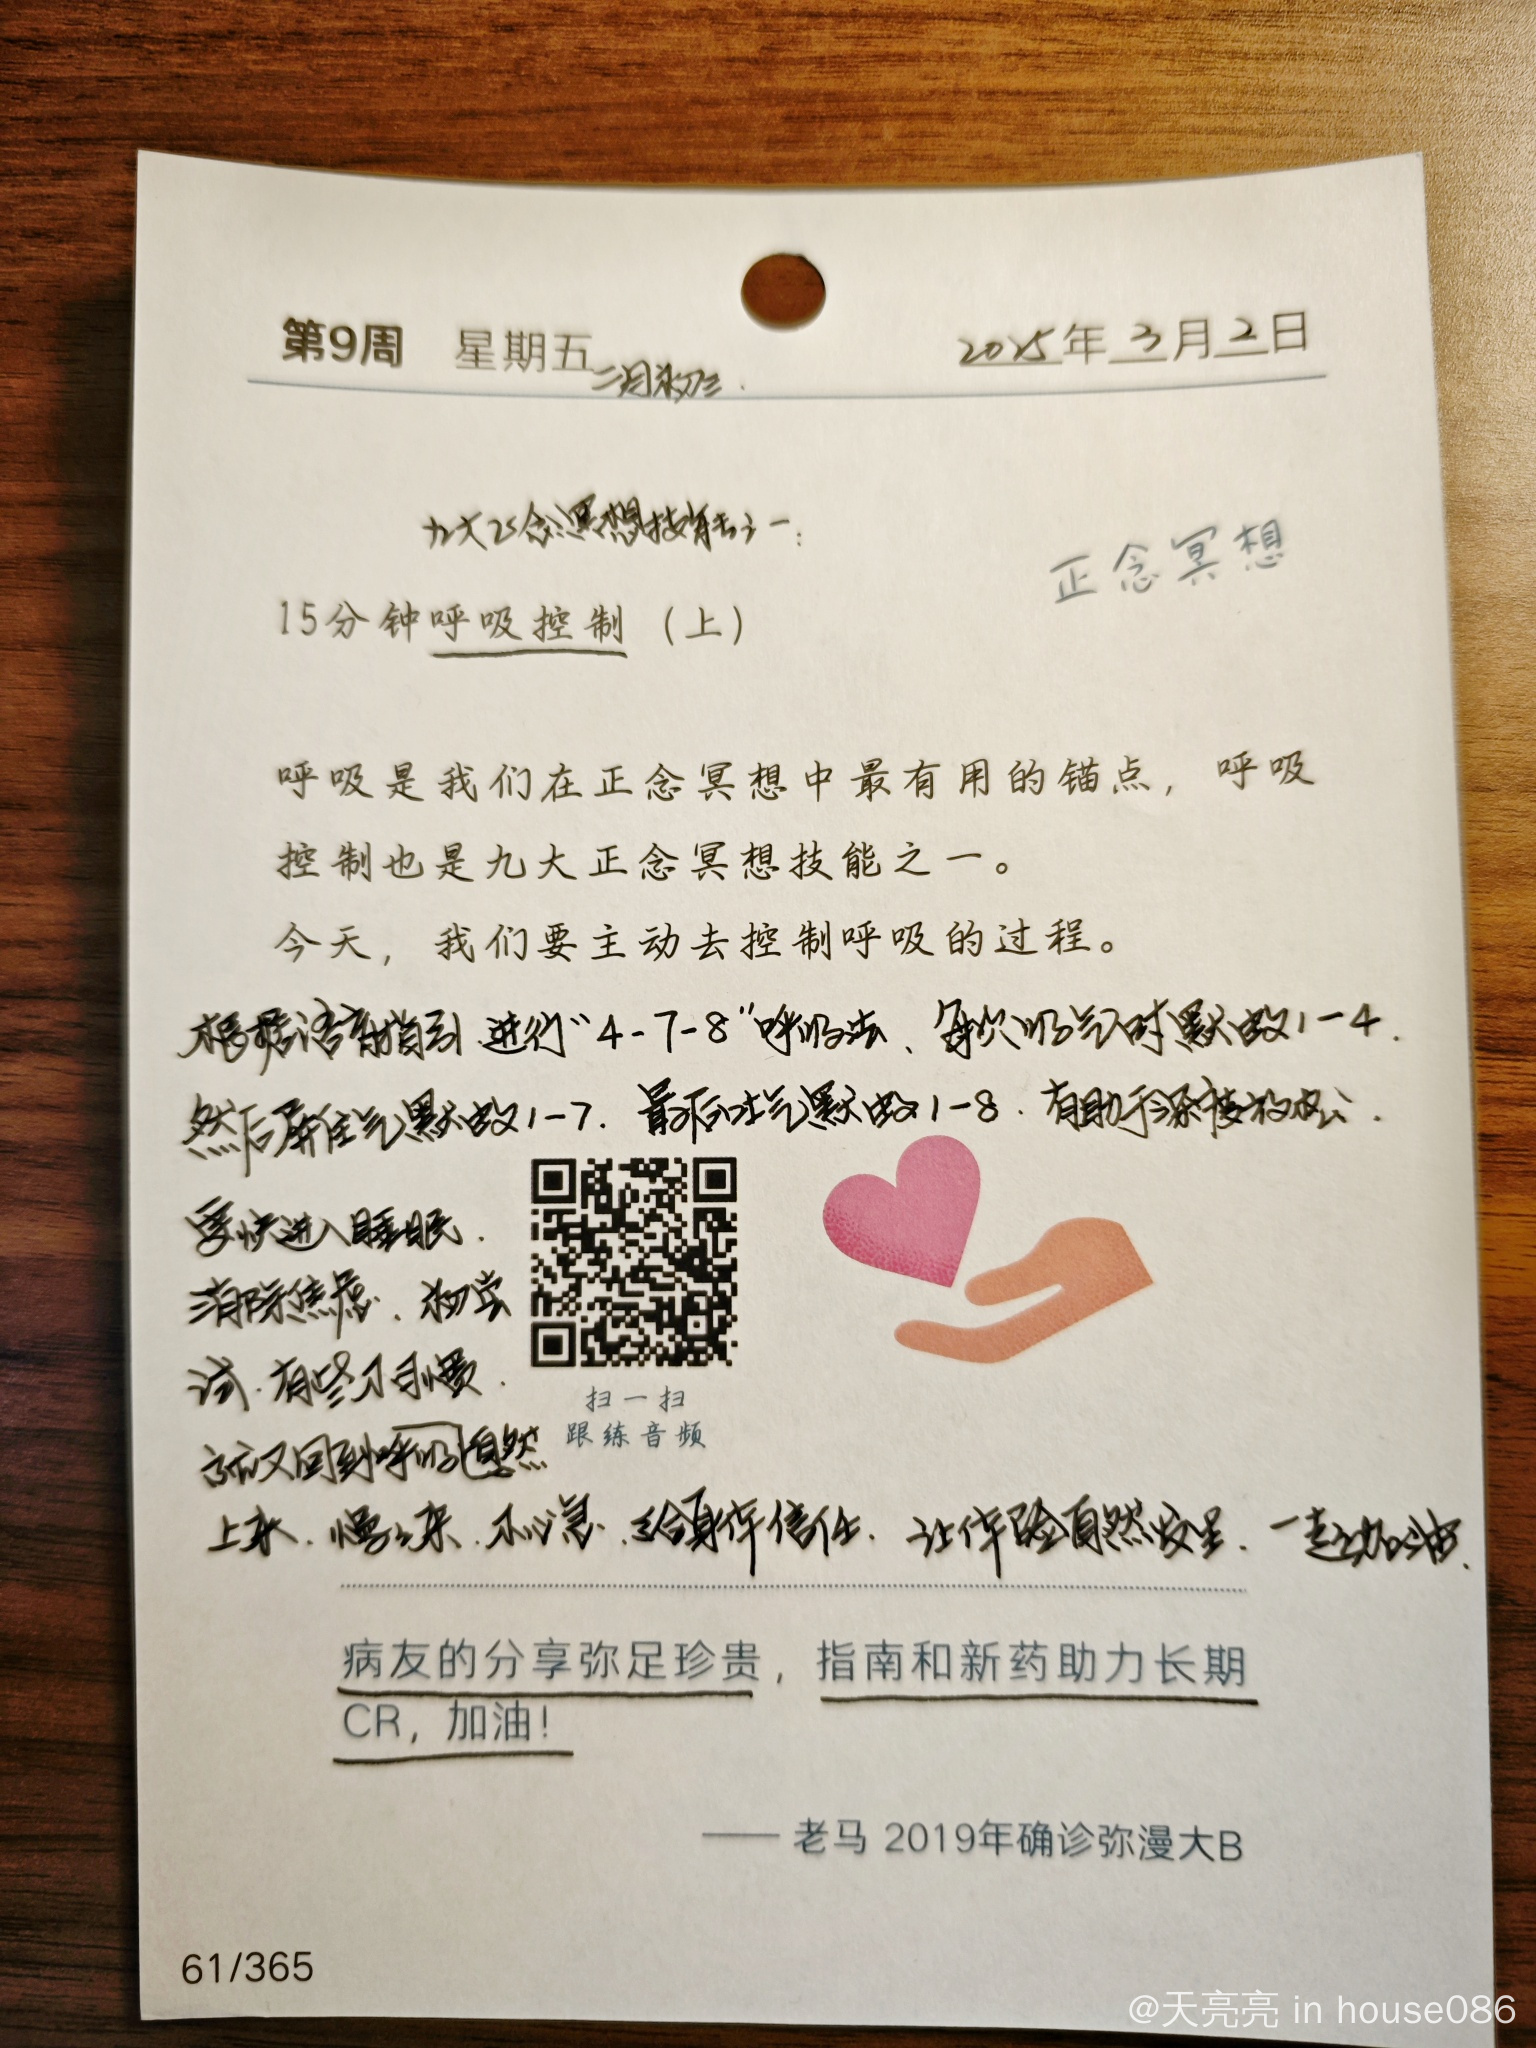 第9周 星期五 2025年3月2日
二月初三.
九大正念冥想技能之一:
正念冥想
15分钟呼吸控制（上）
呼吸是我们在正念冥想中最有用的锚点，呼吸
控制也是九大正念冥想技能之一。
今天，我们要主动去控制呼吸的过程。
根据语音指引 进行“4-7-8”呼吸法、每次吸气时默数1-4.
然后屏住气默数1-7. 最后吐气默数1-8. 有助于深度放松.
更快进入睡眠.
消除焦虑. 初尝
试.有些不习惯.
就又回到呼吸自然
上来.慢慢来.不心急.给身体信任.让体验自然发生.一起加油.
扫一扫
跟练音频
病友的分享弥足珍贵，指南和新药助力长期
CR，加油！
—— 老马 2019年确诊弥漫大B
61/365
@天亮亮 in house086